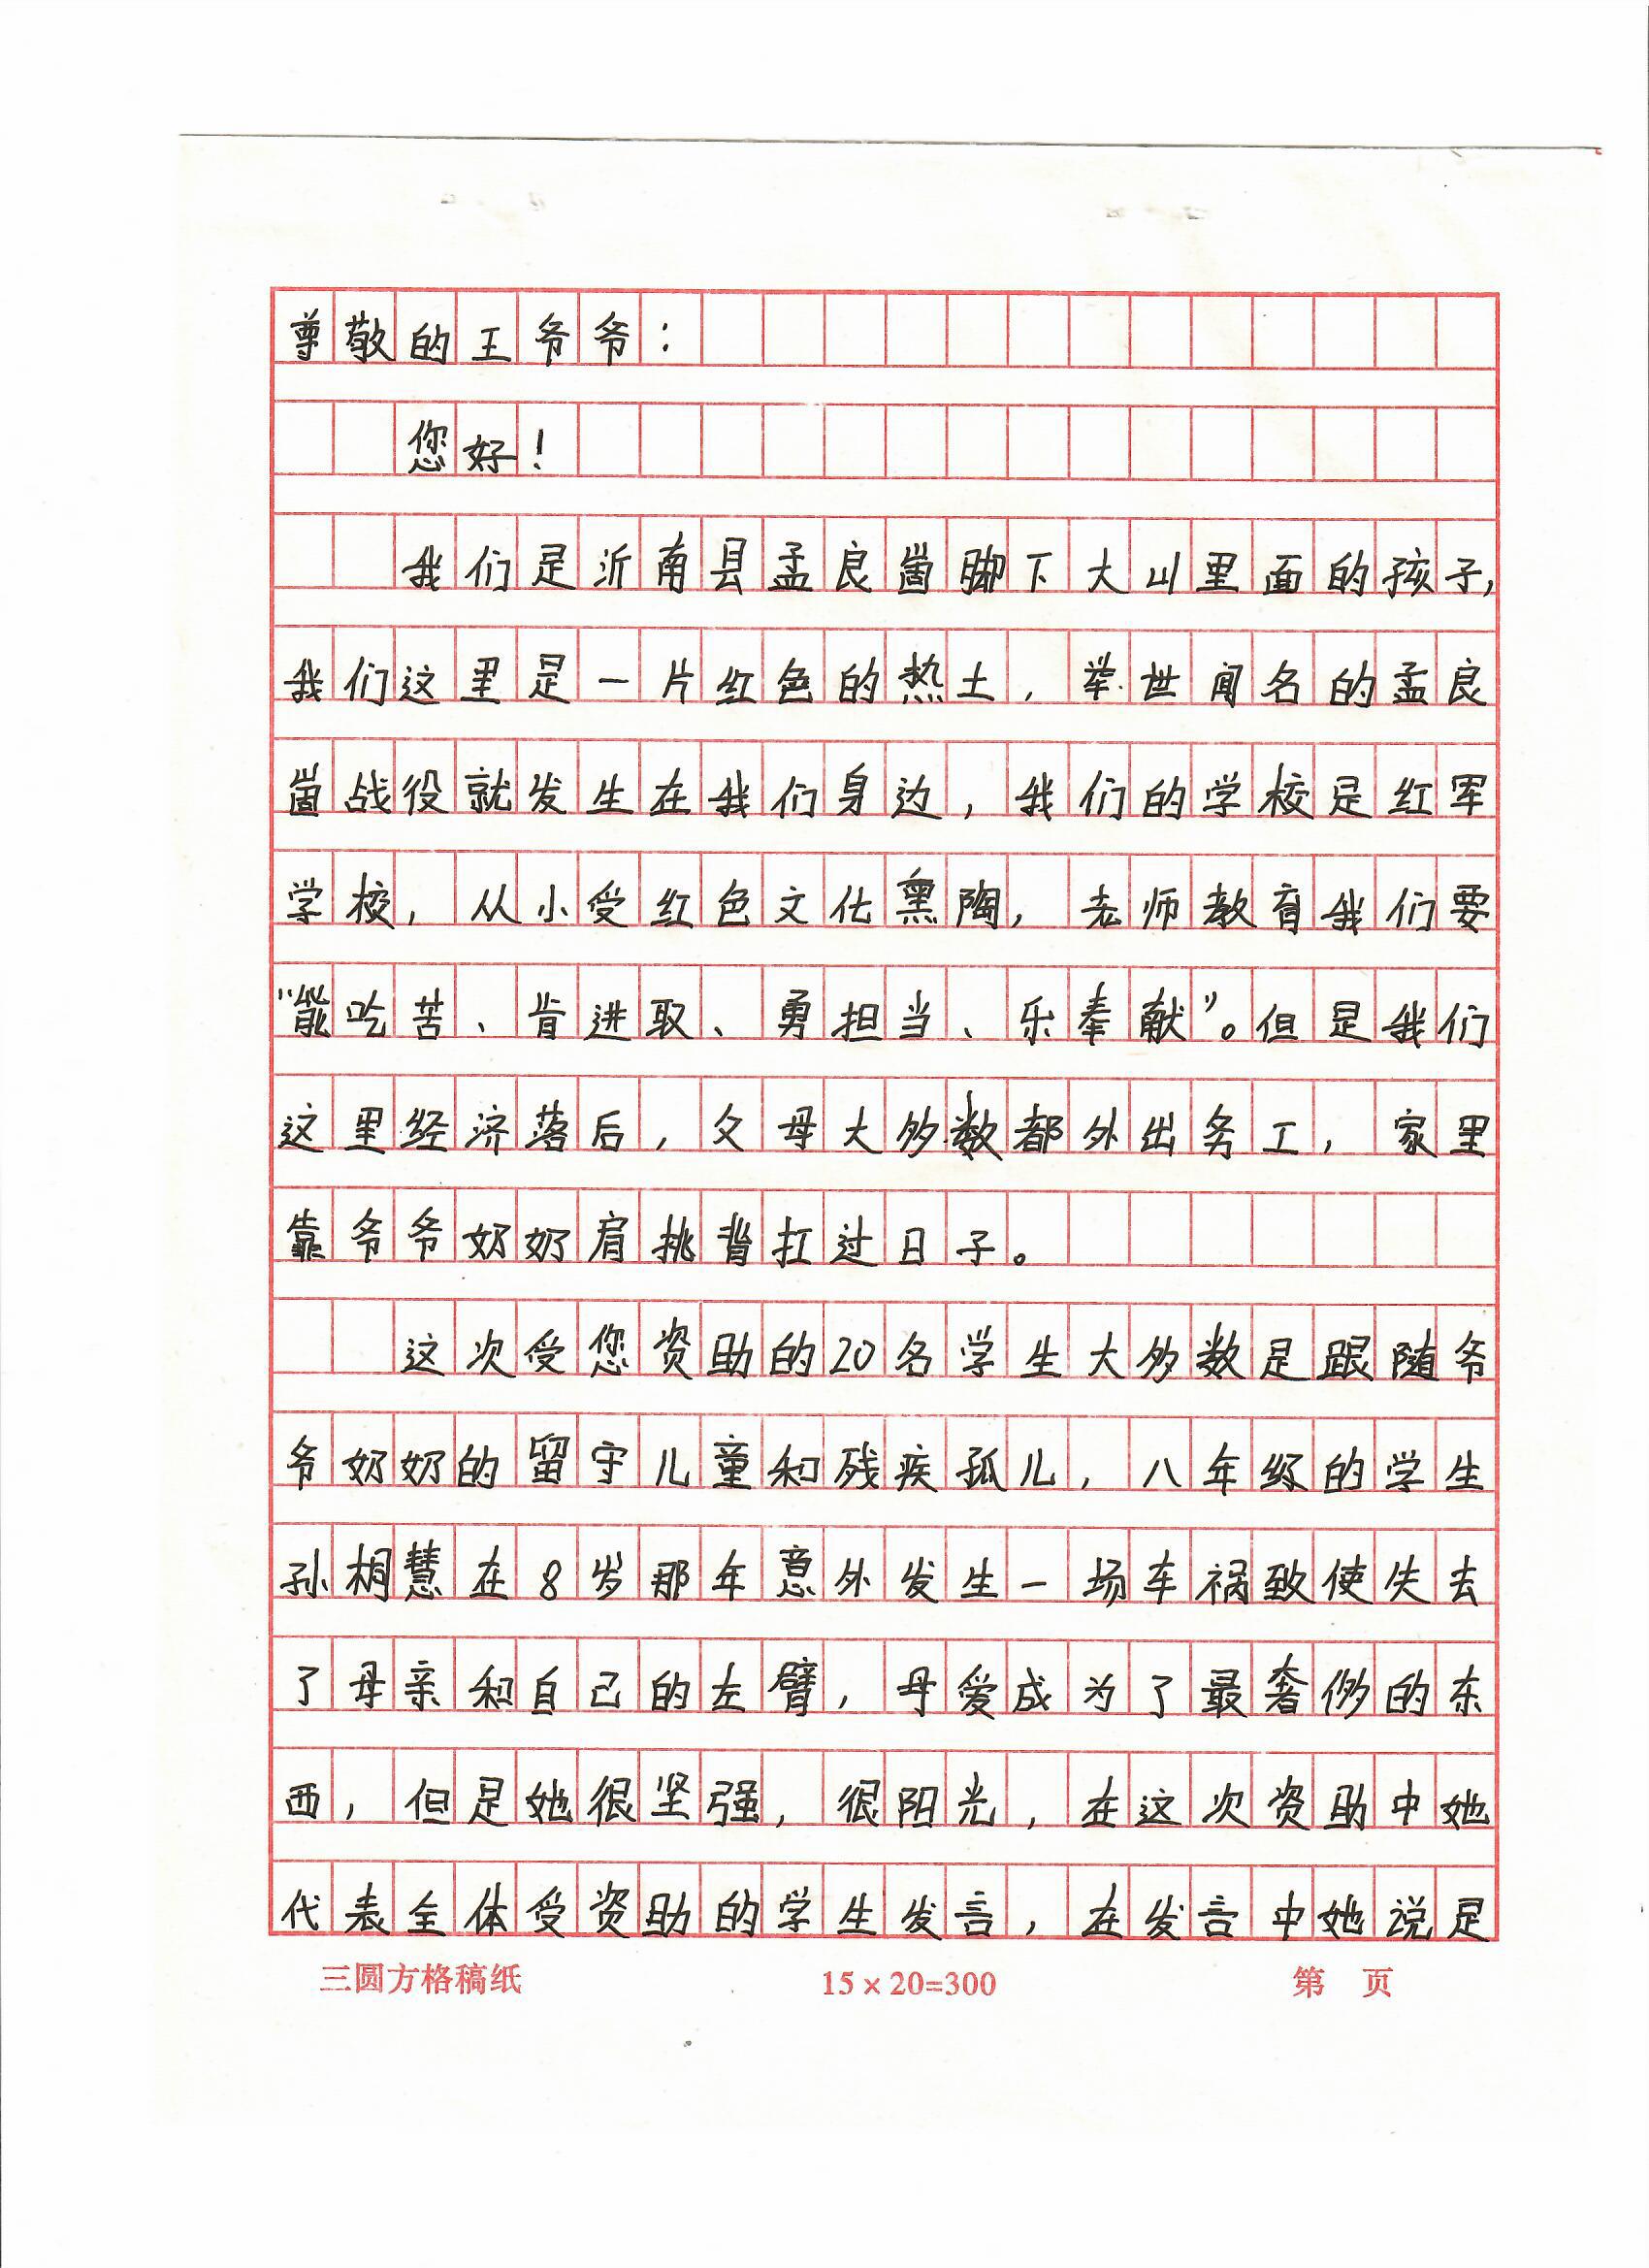 尊敬的王爷爷：
您好！
我们是沂南县孟良崮脚下大山里面的孩子，
我们这里是一片红色的热土，举世闻名的孟良
崮战役就发生在我们身边，我们的学校是红军
学校，从小受红色文化熏陶，老师教育我们要
“能吃苦、肯进取、勇担当、乐奉献”。但是我们
这里经济落后，父母大多数都外出务工，家里
靠爷爷奶奶肩挑背扛过日子。
这次受您资助的20名学生大多数是跟随爷
爷奶奶的留守儿童和残疾孤儿，八年级的学生
孙桐慧在8岁那年意外发生一场车祸致使失去
了母亲和自己的左臂，母爱成为了最奢侈的东
西，但是她很坚强，很阳光，在这次资助中她
代表全体受资助的学生发言，在发言中她说是
三圆方格稿纸 15×20=300 第 页